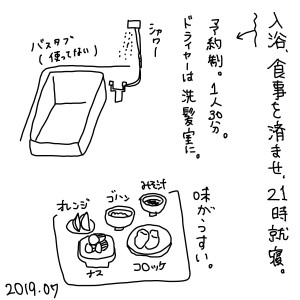 入浴、食事を済ませ、21時就寝。
予約制。1人30分。
ドライヤーは洗髪室に。
シャワー
バスタブ
(使ってない)
味がうすい。
みそ汁
ゴハン
オレンジ
ナス
コロッケ
2019.07